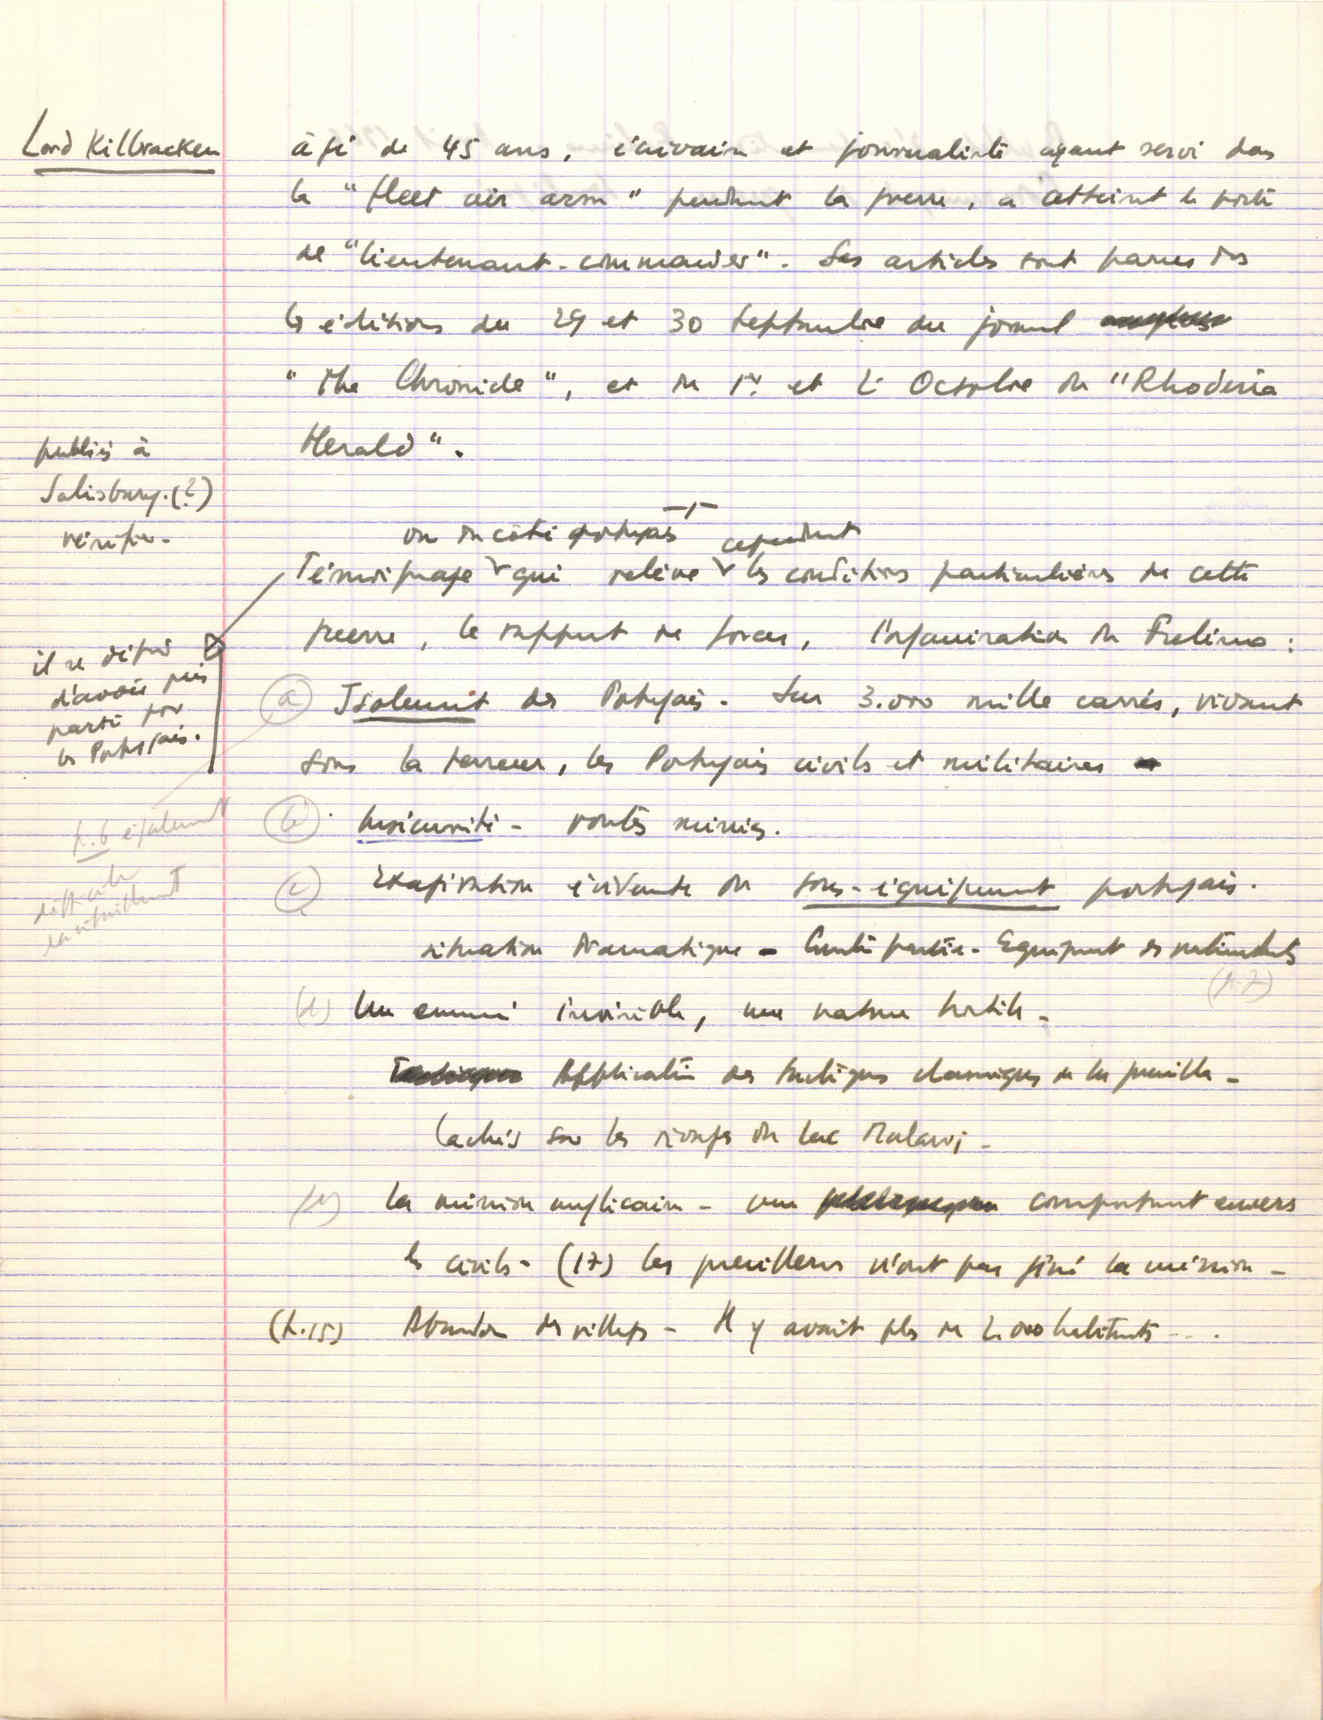 Lord Kilbracken
âgé de 45 ans, écrivain et journaliste ayant servi dans
la "fleet air arm" pendant la guerre, a atteint le
de "lieutenant-commander". Ses articles sont parus dans
les éditions du 29 et 30 Septembre du journal
"The Chronicle", et du 1er et 2 Octobre du "Rhodesia
Herald".
publiés à
Salisbury. (?)
vérifier -
vu du côté portugais cependant
Témoignage qui relève les conditions particulières de cette
guerre, le rapport de forces, l'organisation du Frelimo :
il se défend
d'avoir pris
parti pour
les Portugais.
(a) Isolement des Portugais - Sur 3.000 mille carrés, vivant
sous la terreur, les Portugais civils et militaires
p.6 également
(b) Insécurité - routes minées.
difficile
ravitaillement
(c) Exagération évidente du sous-équipement portugais.
situation dramatique - Contre partie - Equipement des
(p.7)
(d) Un ennemi invisible, une nature hostile -
Application des tactiques classiques de la guerilla -
cachés sur les rivages du lac Malawi -
la mission anglicane - comportement envers
les civils - (17) les guerilleros n'ont pas gêné la mission -
(p.15) Abandon des villages - Il y avait plus de 2.000 habitants - - .